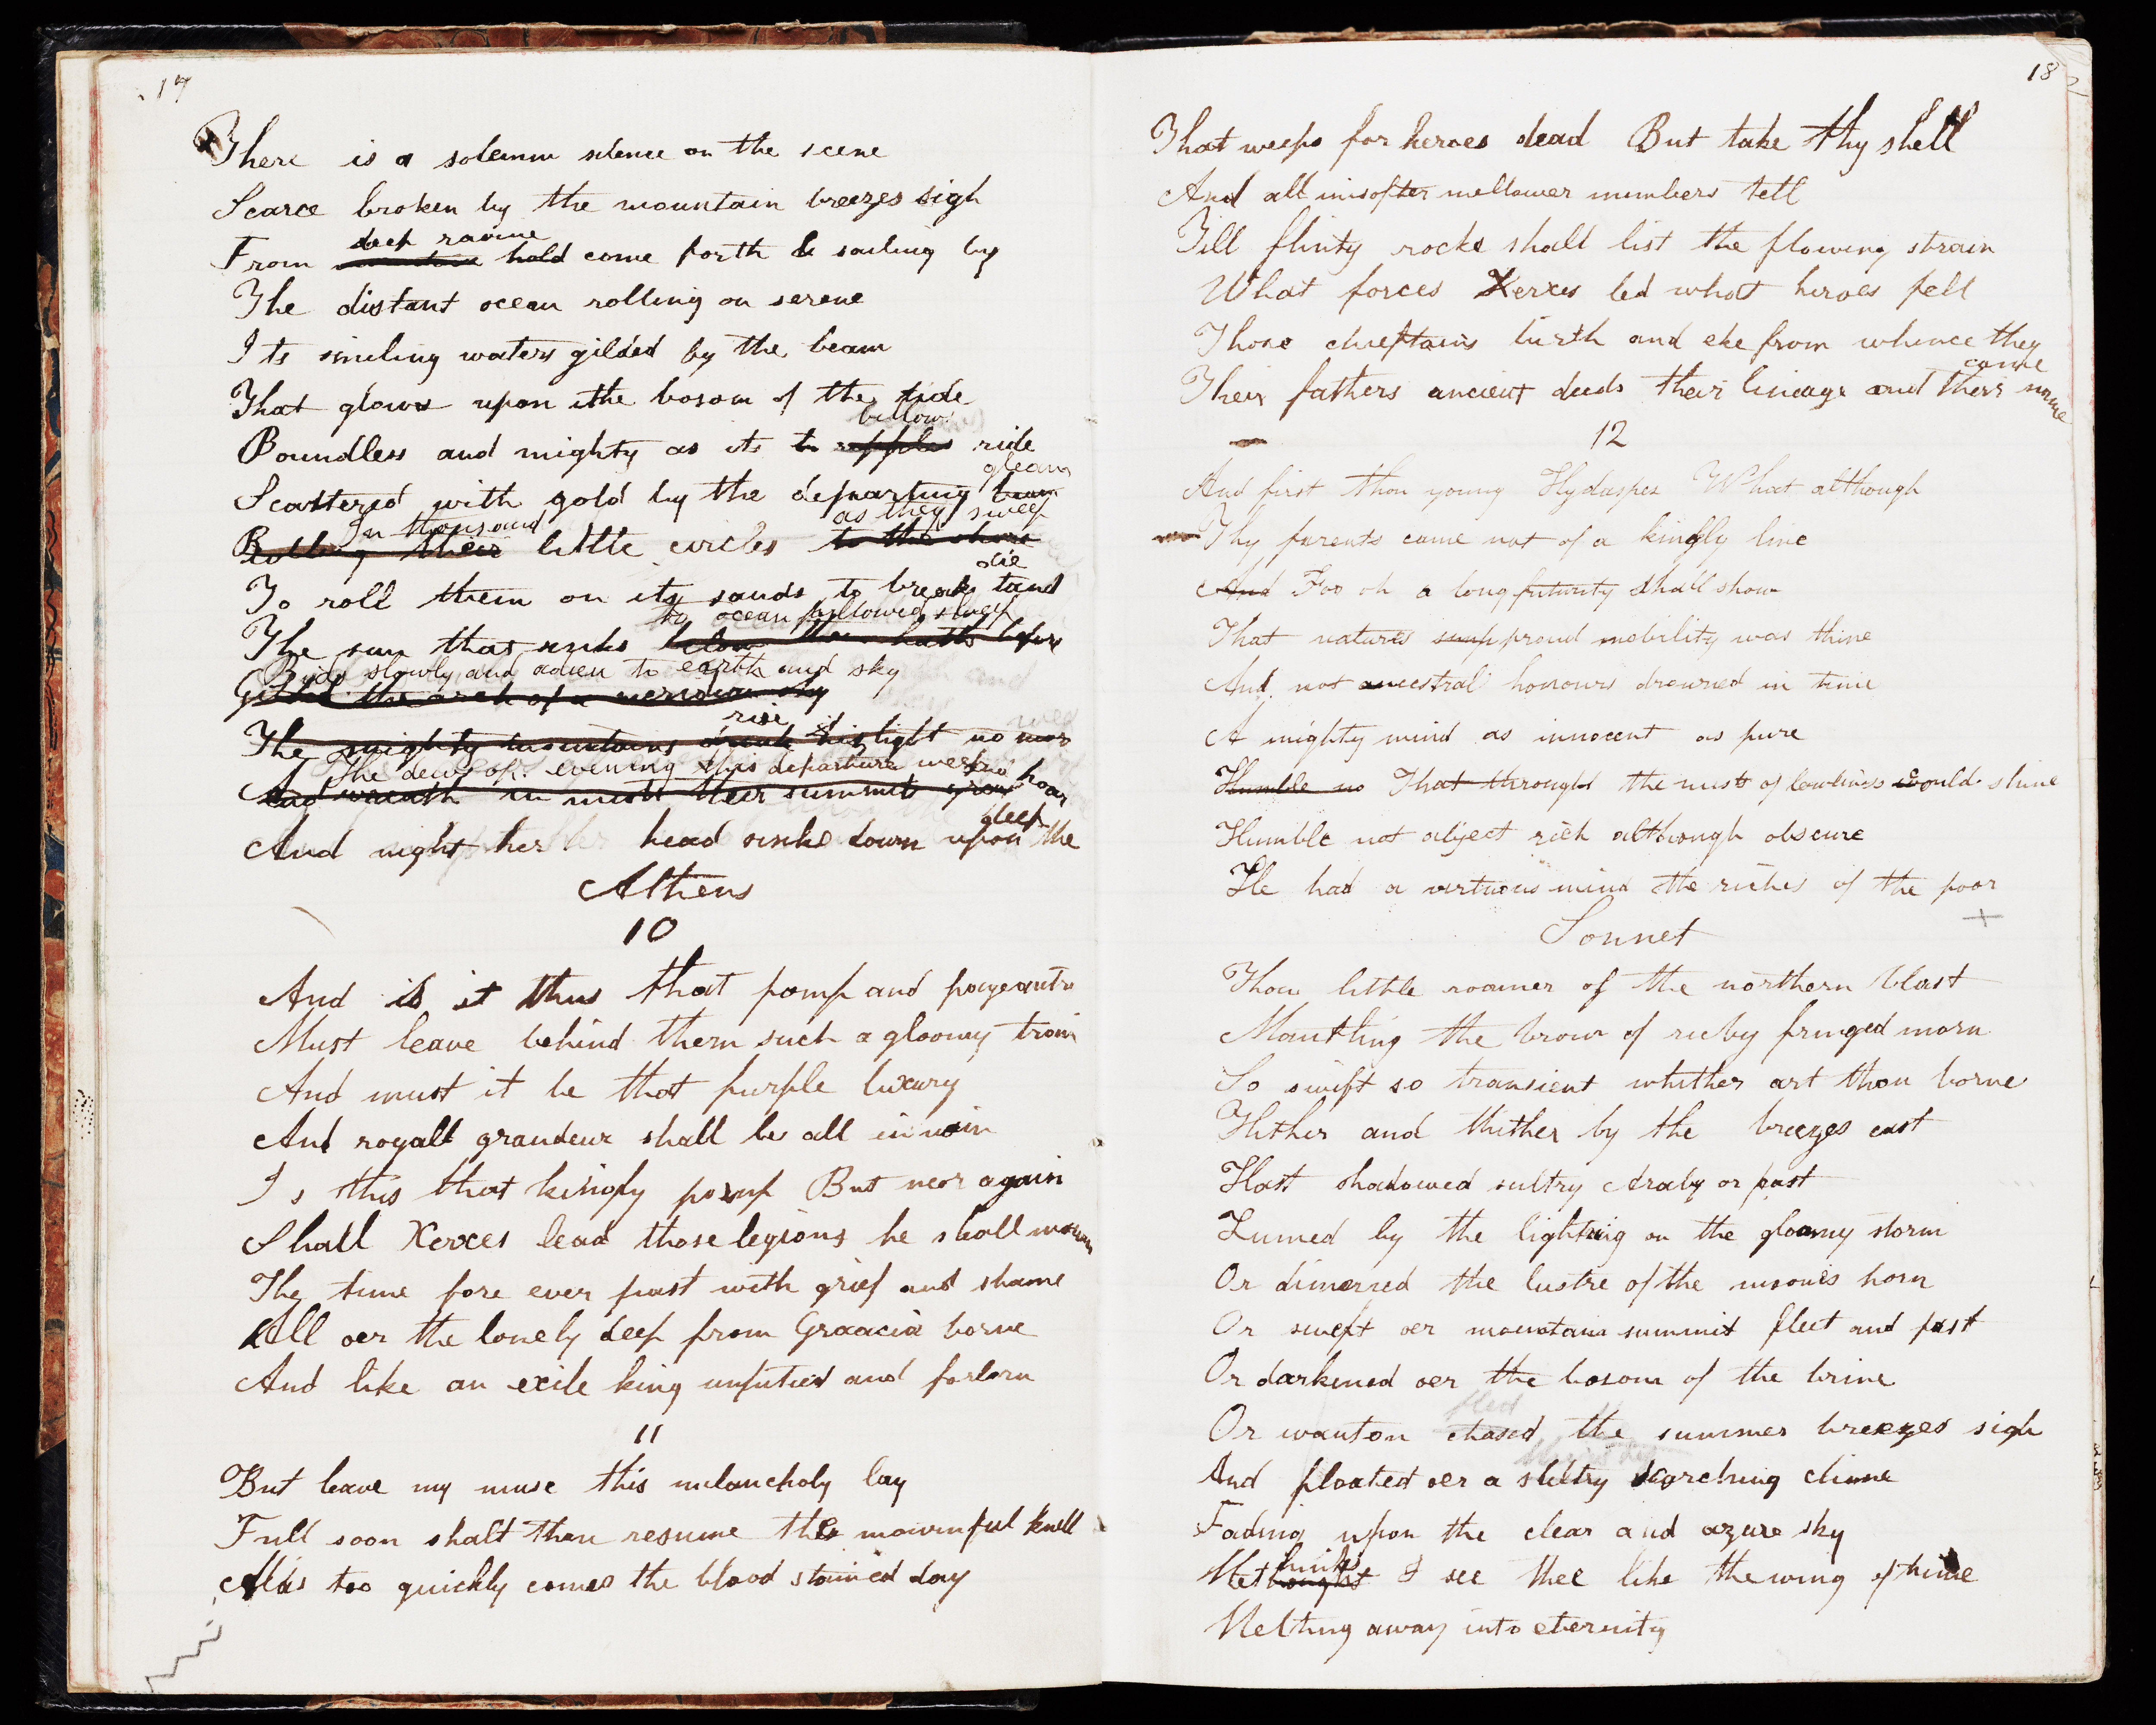 17
There is a solemn silence on the scene
Scarce broken by the mountain breezes sigh
deep ravine
From hold come forth & sailing by
The distant ocean rolling on serene
Its smiling waters gilded by the beam
That glows upon the bosom of the tide
billows
Boundless and mighty as its to ripples ride
gleam
Scattered with gold by the departing beam
In thousand as they sweep
Rolling their little circles to the shore
die
To roll them on its sands to break and
to ocean pillowed sleep
The sun that sinks below
Byds slowly and adieu to earth and sky
Gilded the arch of a meridian sky
rise
The mighty mountains drink his light no more
The dews of evening his departure
And wreath in mists their summits grown hoar
sleep
And night her head sinks down upon the
Athens
10
And is it thus that pomp and pageantry
Must leave behind them such a gloomy train
And must it be that purple luxury
And royall grandeur shall be all in vain
Is this that kingly pomp But neer again
Shall Xerxes lead those legions he shall mourn
The time fore ever past with grief and shame
All oer the lonely deep from Graacia borne
And like an exile king unpitied and forlorn
11
But leave my muse this melancholy lay
Full soon shalt thou resume the mournful knell
Alas too quickly comes the blood stained day
18
That weeps for heroes dead But take thy shell
And all in softer mellower numbers tell
Till flinty rocks shall list the flowing strain
What forces Xerxes led what heroes fell
Those chieftains birth and eke from whence they
came
Their fathers ancient deeds their lineage and their name
12
And first thou young Hydaspes What although
Thy parents came not of a kingly line
And Foo oh a long futurity shall show
That natures proud nobility was thine
And not ancestral honours drowned in time
A mighty mind as innocent as pure
Humble no That through the mists of lowliness would shine
Humble not abject rich although obscure
He had a virtuous mind the riches of the poor
+
Sonnet
Thou little roamer of the northern blast
Mantling the brow of ruby fringed morn
So swift so transient whither art thou borne
Hither and thither by the breezes cast
Hast shadowed sultry Araby or past
Lumed by the lightning on the gloomy storm
Or dimmed the lustre of the moones horn
Or swept oer mountains summit fleet and past
Or darkened oer the bosom of the brine
fled
Or wanton chased the summer breezes sigh
And floated oer a sultry scorching clime
Fading upon the clear and azure sky
thinks
Methought I see thee like the wing of time
Melting away into eternity